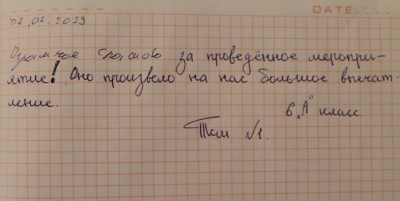 DATE
02.02.2023
Огромное спасибо за проведённое меропри-
ятие! Оно произвело на нас большое впечат-
ление.
6 "А" класс
№1.